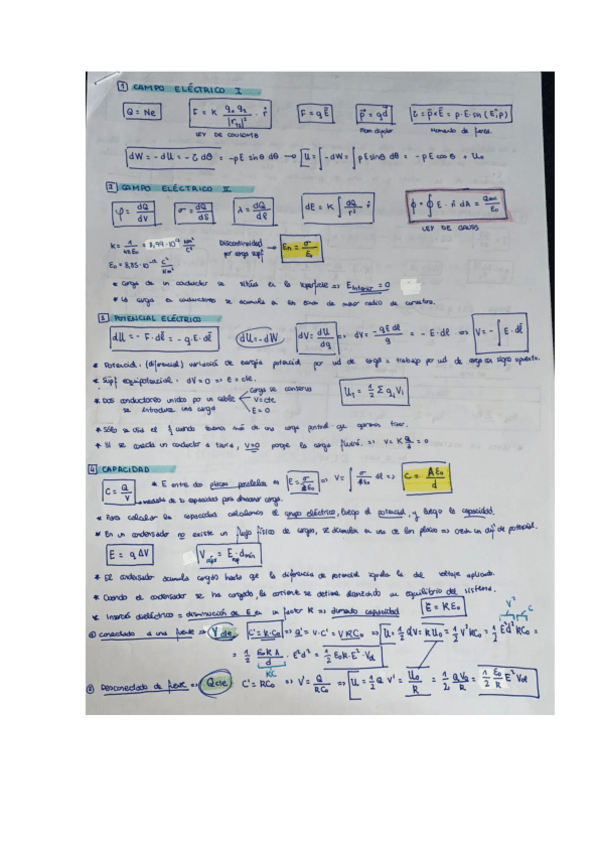 1 CAMPO ELÉCTRICO I
Q = Ne F = K q₀ q₁ / |r₁₂|² · r̂ F = qE⃗ p⃗ = qd⃗ τ⃗ = p⃗×E⃗ = p·E·sen(E⃗,p⃗)
LEY DE COULOMB Mom dipolar Momento de fuerza.
dW = -dU = -τ dθ = -pE sinθ dθ → U = ∫-dW = ∫pE sinθ dθ = -pE cosθ + U₀
2 CAMPO ELÉCTRICO II
φ = dQ/dV σ = dQ/dS λ = dQ/dℓ dE = K ∫ dQ/r² r̂ ϕ = ∮ E · n̂ dA = Q/ε₀
LEY DE GAUSS
K = 1/4πε₀ = 8,99·10⁹ Nm²/C² Discontinuidad por carga supf → En = σ/ε₀
ε₀ = 8,85·10⁻¹² C²/Nm²
* Carga de un conductor se sitúa en la superficie => E interior = 0
* La carga en conductores se acumula en en zonas de menor radio de curvatura.
3 POTENCIAL ELÉCTRICO
dU = -F·dℓ = -q·E·dℓ dU = -dW dV = dU/dq => dV = -qEdℓ/q = -E·dℓ => V = -∫E·dℓ
* Potencial: (diferencial) variación de energía potencial por ud de carga = trabajo por ud de carga con signo opuesto.
* Supf equipotencial: dV = 0 => E = cte.
* Dos conductores unidos por un cable Carga se conserva
se introduce una carga V = cte
E = 0
U₁ = 1/2 Σ qᵢ Vᵢ
* Sólo se usa el 1/2 cuando tenemos más de una carga puntual
* Si se conecta un conductor a tierra, V=0 porque la carga fluirá. => V = K Q/d = 0
4 CAPACIDAD
C = Q/V * E entre dos placas paralelas => E = σ/ε₀ => V = ∫ σ/ε₀ dℓ => C = Aε₀/d
→ medida de la capacidad para almacenar carga.
* Para calcular la capacidad calculamos el campo eléctrico, luego el potencial, y luego la capacidad.
* En un condensador no existe un flujo físico de cargas, se acumulan en una de las placas => crean un dif de potencial.
E = q ΔV V = E · dmín
* El condensador acumula cargas hasta que la diferencia de potencial iguala la del voltaje aplicado.
* Cuando el condensador se ha cargado, la corriente se detiene alcanzando un equilibrio del sistema.
* Inserción dieléctrico = disminución de E en un factor K => aumento capacidad E = KE₀
V² C
A conectado a una fuente => V cte. C' = K·C₀ => Q' = V·C' = VKC₀ => U = 1/2 QV = KU₀ = 1/2 V²KC₀ = 1/2 E²d² KC₀ =
= 1/2 ε₀KA/d · E²d² = 1/2 ε₀K·E²·Vol
KC
B Desconectado de fuente => Q cte C' = KC₀ => V' = Q/KC₀ => U = 1/2 Q V' = U₀/K = 1/2 QV₀/K = 1/2 ε₀/K E² Vol